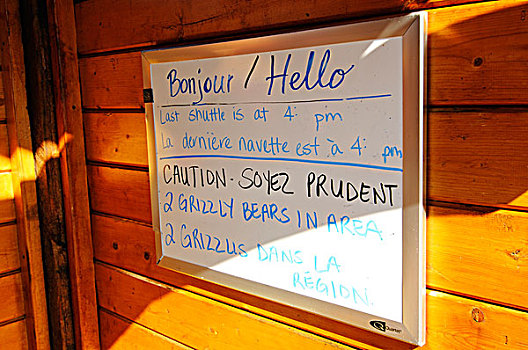 Bonjour / Hello
Last shuttle is at 4: pm
La dernière navette est à 4: pm
CAUTION - SOYEZ PRUDENT
2 GRIZZLY BEARS IN AREA.
2 GRIZZLIS DANS LA
RÉGION.
Quartet